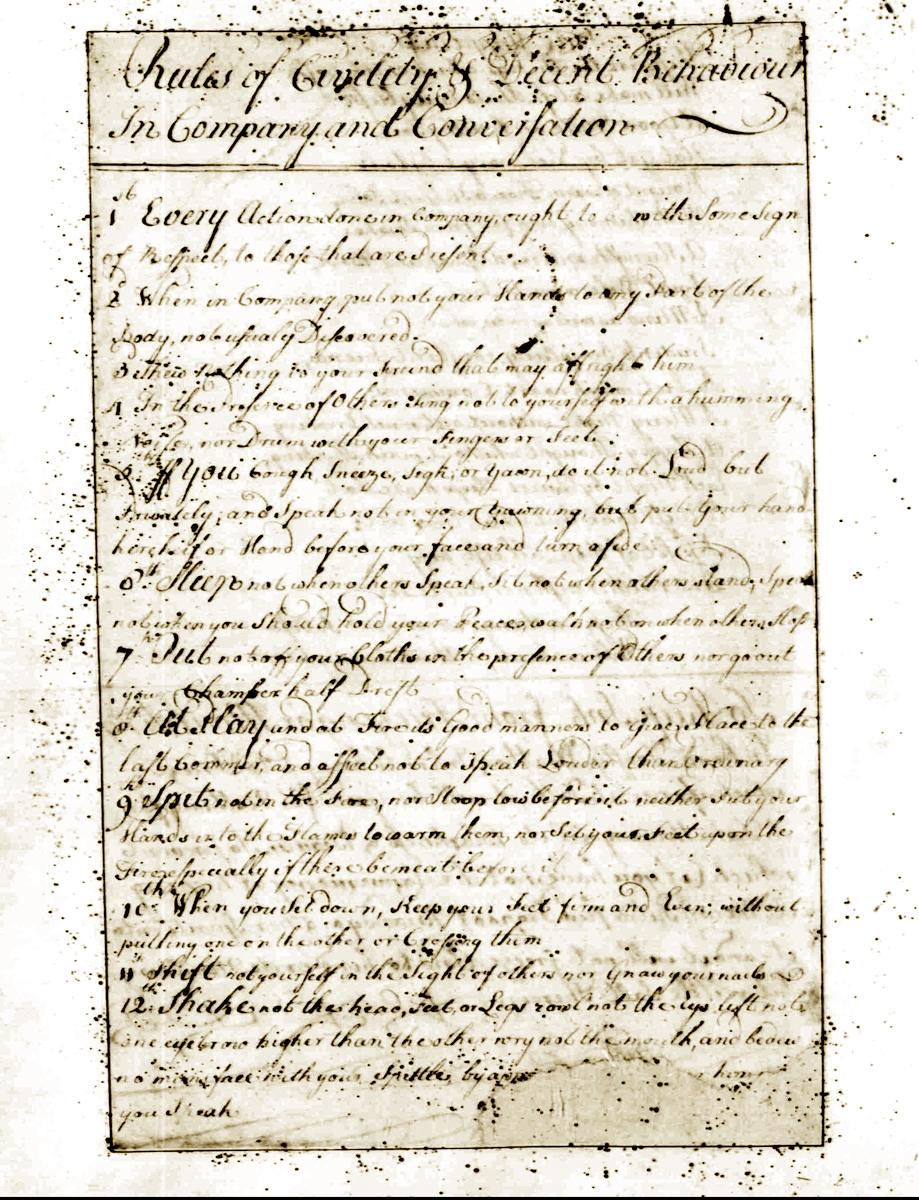 Rules of Civility & Decent Behaviour
In Company and Conversation
1st Every Action done in Company, ought to with Some Sign
of Respect, to those that are Present.
2d When in Company, put not your Hands to any Part of the
Body, not usualy Discovered.
3 Shew Nothing to your Freind that may affright him
4 In the Presence of Others Sing not to yourself with a humming
Noise, nor Drum with your Fingers or Feet.
5th If You Cough, Sneeze, Sigh, or Yawn, do it not Loud but
Privately; and Speak not in your Yawning, but put Your hand
kercheif or Hand before your face and turn aside
6th Sleep not when others Speak, Sit not when others stand, Speak
not when you Should hold your Peace, walk not on when others Stop
7th Put not off your Cloths in the presence of Others, nor go out
your Chamber half Drest
8th At Play and at Fire its Good manners to Give Place to the
last Commer, and affect not to Speak Louder than Ordinary
9th Spit not in the Fire, nor Stoop low before it neither Put your
Hands into the Flames to warm them, nor Set your Feet upon the
Fire especially if there be meat before it
10th When you Sit down, Keep your Feet firm and Even; without
putting one on the other or Crossing them
11th Shift not yourself in the Sight of others nor Gnaw your nails
12th Shake not the head, Feet, or Legs rowl not the Eys lift not
one eyebrow higher than the other wry not the mouth, and bedew
no mans face with your Spittle, by whom
you Speak